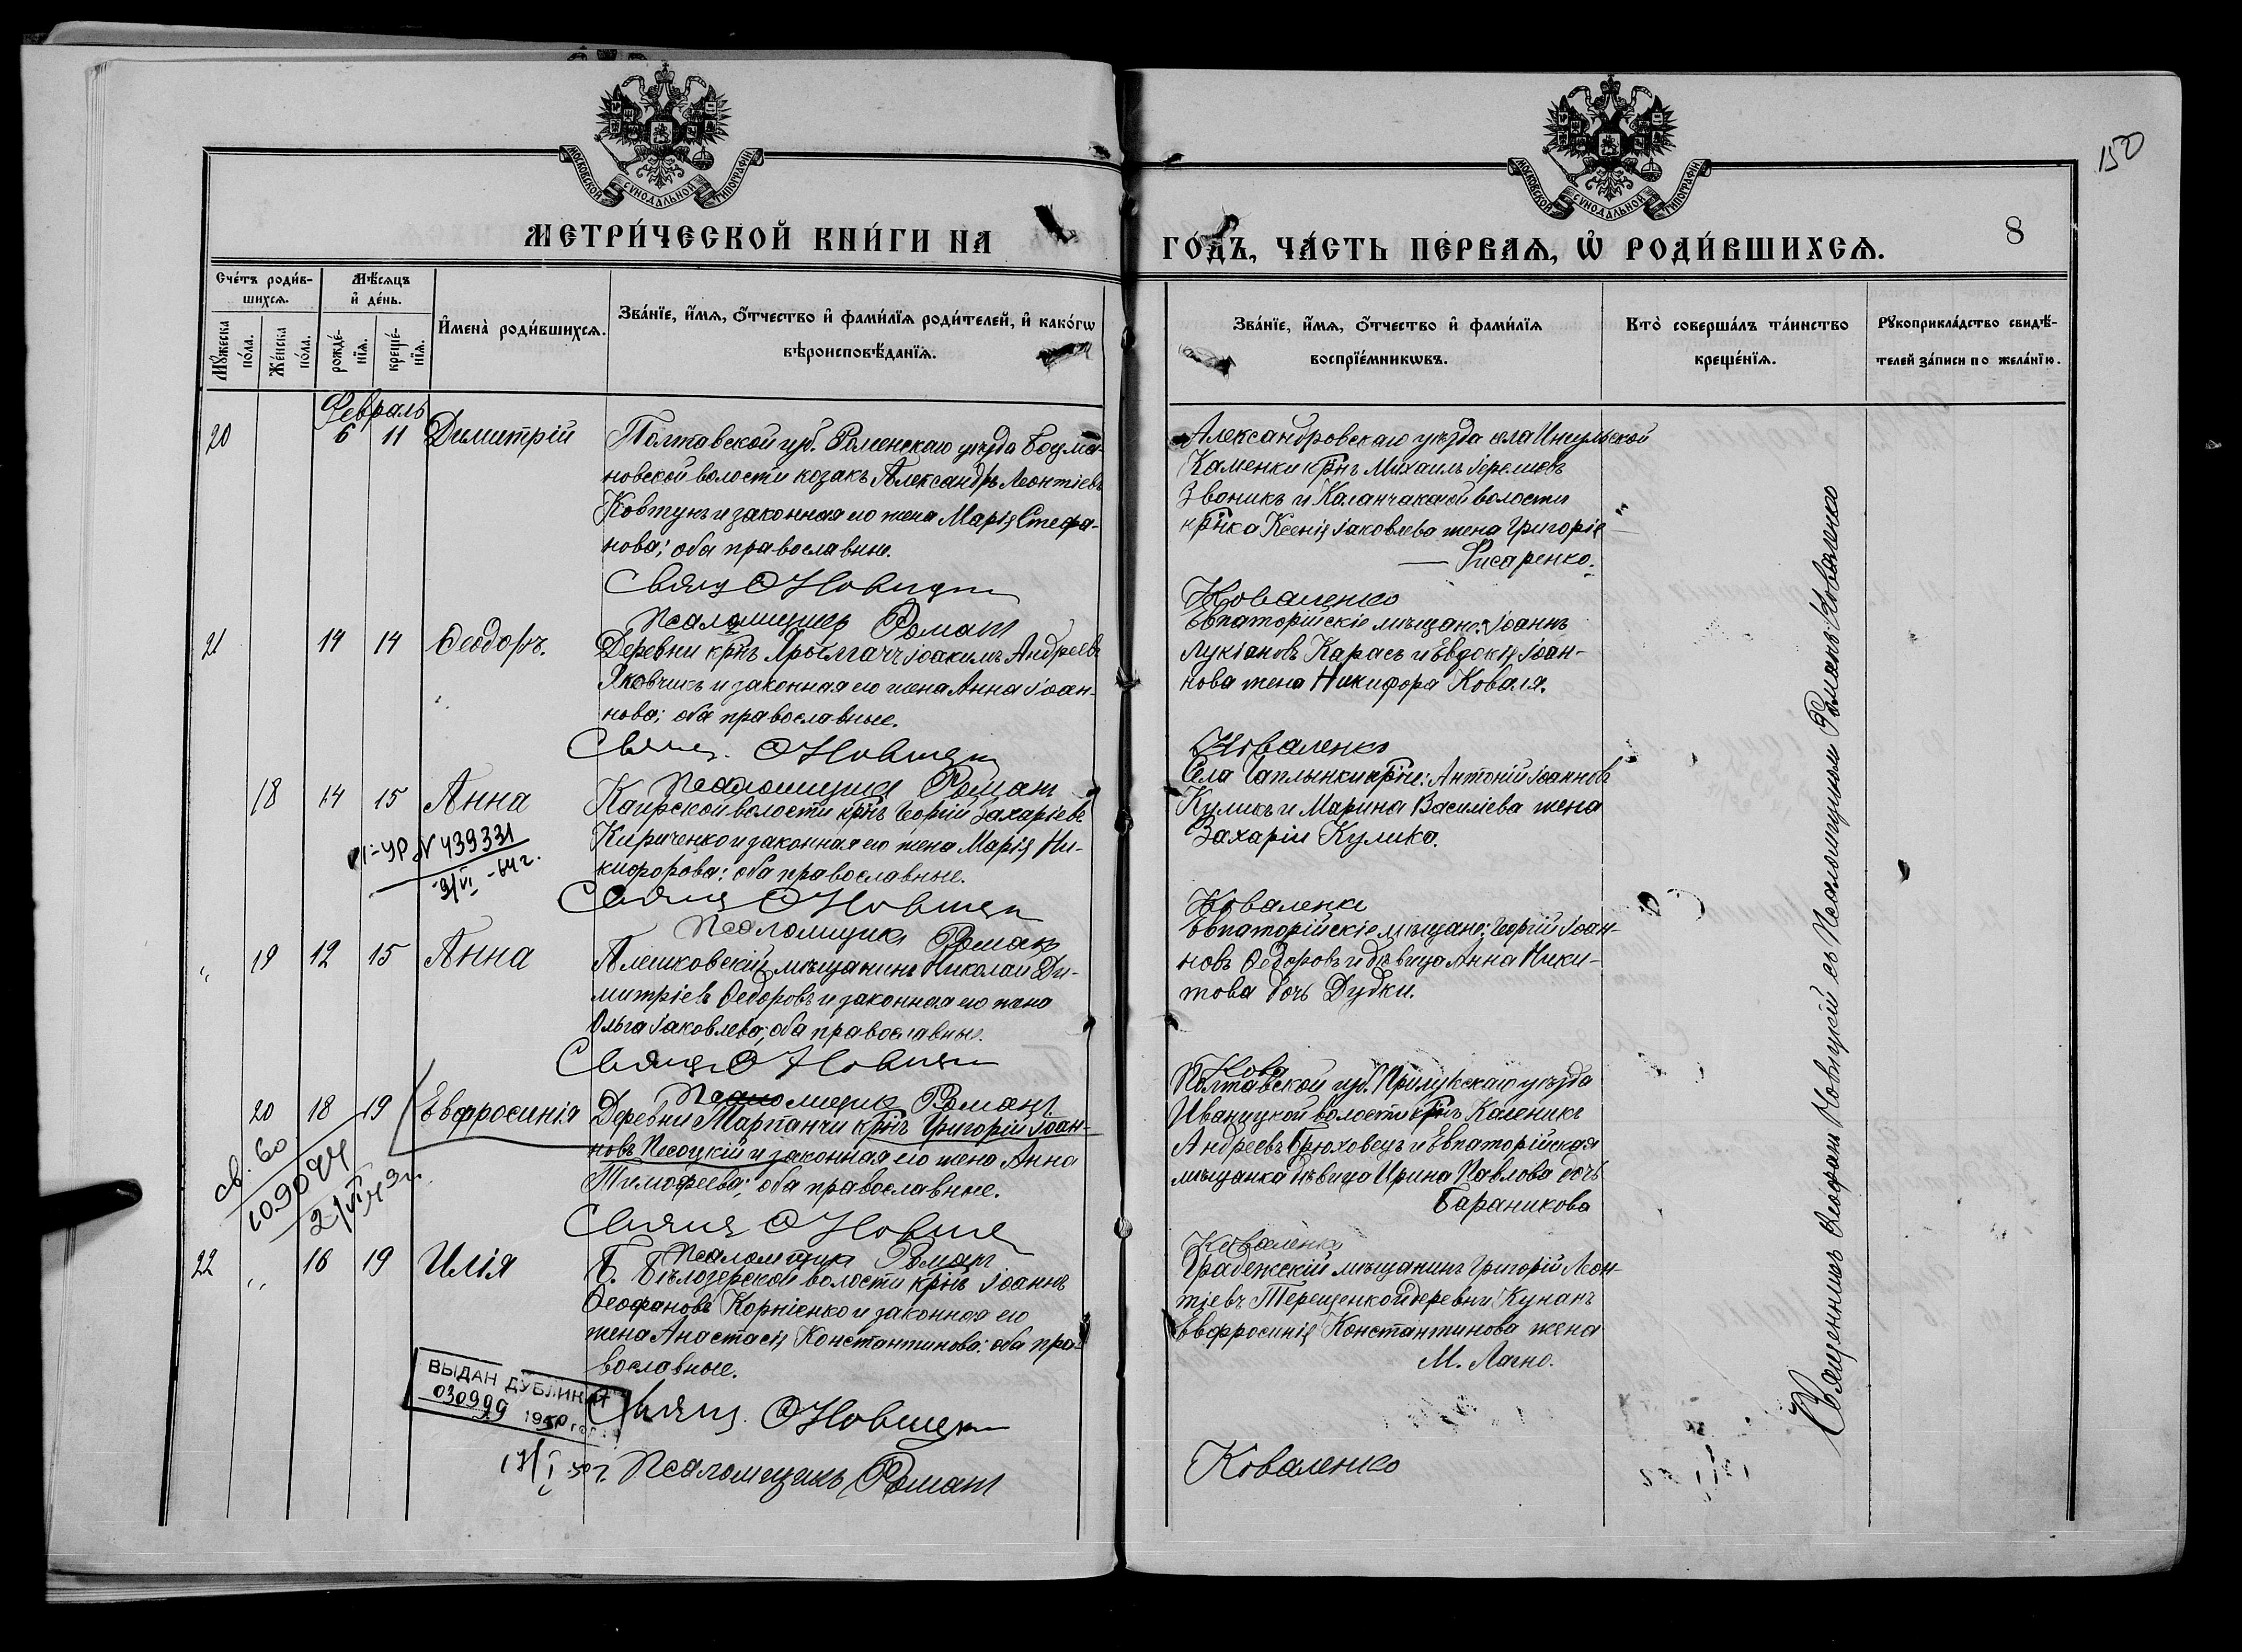 МОСКОВСКОЙ СУНОДАЛЬНОЙ ТИПОГРАФІИ
МОСКОВСКОЙ СУНОДАЛЬНОЙ ТИПОГРАФІИ
150
8
МЕТРИ́ЧЕСКОЙ КНИ́ГИ НА
ГО́ДЪ, ЧА́СТЬ ПЕ́РВАѦ, Ѡ РОДИ́ВШИХСѦ.
Сче́тъ роди́в-
шихсѧ.
Мꙋ́жеска по́ла.
Же́нска по́ла.
Мѣ́сѧцъ
и҆ де́нь.
рожде́-
нїѧ.
креще́-
нїѧ.
И҆мена̀ роди́вшихсѧ.
Зва́нїе, и҆́мѧ, ѻ҆́тчество и҆ фами́лїѧ роди́телей, и҆ како́гѡ
вѣроисповѣ́данїѧ.
Зва́нїе, и҆́мѧ, ѻ҆́тчество и҆ фами́лїѧ
воспрїе́мникѡвъ.
Кто̀ соверша́лъ та́инство
креще́нїѧ.
Рꙋкоприкла́дство свидѣ́-
телей за́писи по жела́нїю.
Февраль
20 6 11 Димитрій
Полтавской губ. Роменскаго уѣзда
новской волости козакъ Александръ Леонтіевъ
Ковтунъ и законная его жена Марія Стефа-
нова; оба православные.
Свящ. Ѳ Новицкій
Псаломщикъ Роман
Александровскаго уѣзда села
Каменки крнъ Михаилъ Іереміевъ
Званикъ и Каланчакской волости
крнка Ксенія Іаковлева жена Григорія
Писаренко.
Коваленко
21 14 14 Ѳеодоръ.
Деревни крнъ Іоакимъ Андреевъ
Яковчикъ и законная его жена Анна Іоан-
нова; оба православные.
Свящ. Ѳ Новицкій
Псаломщикъ Роман
Евпаторійскіе мѣщане: Іоаннъ
Лукіановъ Карась и Евдокія Іоан-
нова жена Никифора Коваля.
Коваленко
18 14 15 Анна
Каирской волости крнъ Георгій Захаріевъ
Кириченко и законная его жена Марія Ни-
кифорова: оба православные.
Свящ Ѳ Новицкій
Псаломщикъ Роман
УР N 439331
9/VI -64 г.
Села Чаплынки крне: Антоній Іоанновъ
Куликъ и Марина Василіева жена
Захаріи Кулика.
Коваленко
" 19 12 15 Анна
Алешковскій мѣщанинъ Николай Ди-
митріевъ Ѳедоровъ и законная его жена
Ольга Іаковлева; оба православные.
Свящ Ѳ Новицкій
Псаломщикъ Роман
Евпаторійскіе мѣщане: Георгій Іоан-
новъ Ѳедоровъ и дѣвица Анна Ники-
това дочь Дудки.
Кова
20 18 19 Евфросинія
Деревни Марпанчи крнъ Григорій Іоан-
новъ Песоцкій и законная его жена Анна
Тимоѳеева; оба православные.
Свящ Ѳ Новицкій
Псаломщикъ Роман
св. 60
109044
Полтавской губ. Прилукскаго уѣзда
Иваницкой волости крнъ Калиникъ
Андреевъ Брюховецъ и Евпаторійская
мѣщанка дѣвица Ирина Павлова дочь
Бараникова
Коваленко
22 " 16 19 Илія
Б. Бѣлозерской волости крнъ Іоаннъ
Ѳеофановъ Корніенко и законная его
жена Анастасія Константинова: оба пра-
вославные.
Свящ. Ѳ Новицкій
Псаломщикъ Роман
ВЫДАН ДУБЛИКАТ
030999 1950 год
17/I 50 г.
мѣщанинъ Григорій Леон-
тіевъ Терещенко и деревни Кунанъ
Евфросинія Константинова жена
М. Лагно.
Коваленко
Священникъ Ѳеофанъ Новицкій съ Псаломщикомъ Романъ Коваленко